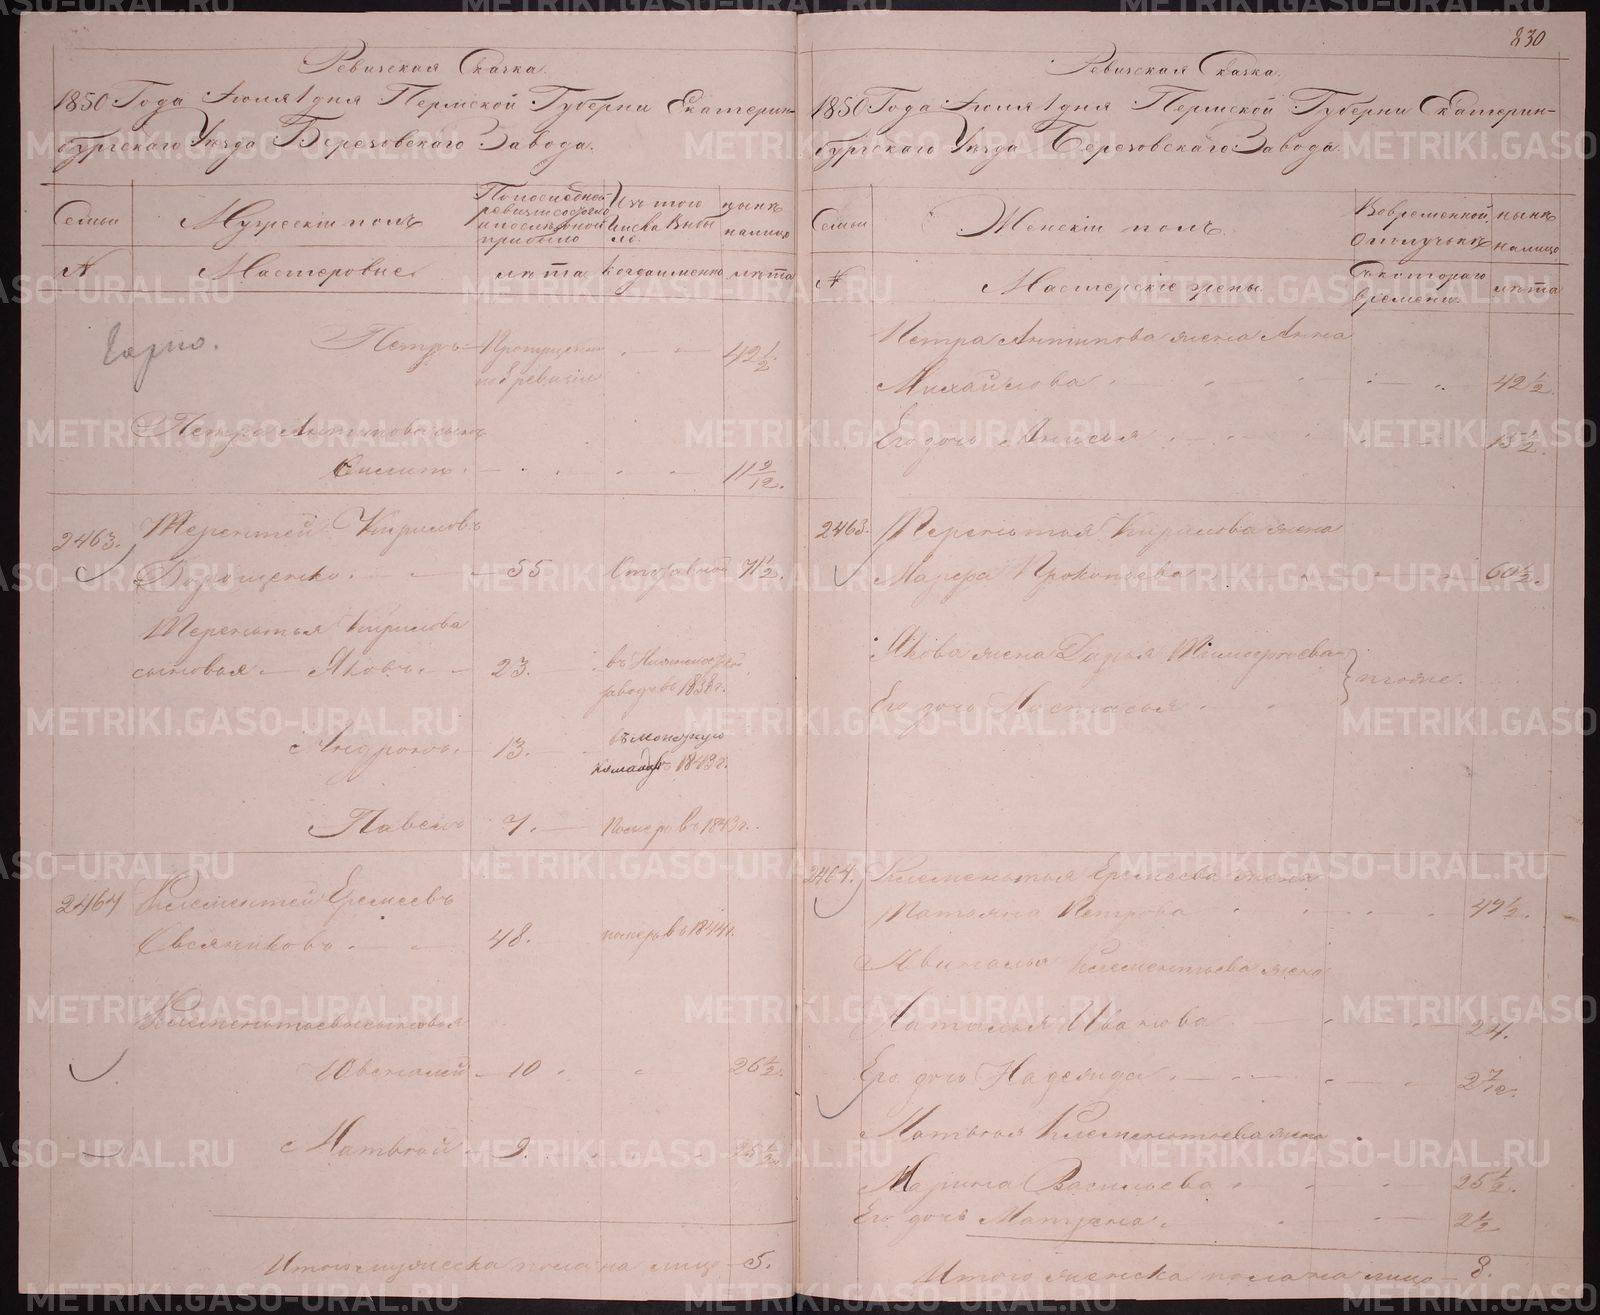 Ревизская Сказка.
1850 Года Июля 1 дня Пермской Губерни Екатерин-
бургскаго Уезда Березовскаго Завода.
Семьи
Мужескій полъ
По последной
ревизіи состояло
и после оной
прибыло
Изъ того
числа выбы
ло.
ныне
на лицо
№
Мастеровые
лѣта
когда именно
лѣта
Петръ
Пропущенъ
по 8 ревизіи
42 1/2
Петра Антипова сынъ
Филипъ
11 9/12.
2463.
Терентей Кириловъ
Дорощенко.
55
Отставной
71 1/2.
Терентья Кирилова
сыновья
Яковъ.
23.
заводъ въ 1838 г.
Андронъ.
13.
въ
команду въ 1843 г.
Павелъ
7.
померъ въ 1843 г.
2464
Клементей Еремеевъ
Овсяниковъ
48.
померъ въ 1844 г.
Клементьевы сыновья
Ювеналей
10
26 1/2.
Матвей
9.
25 1/2
Итого мужеска пола на лицо 5.
830
Ревизская Сказка.
1850 Года Июля 1 дня Пермской Губерни Екатерин-
бургскаго Уезда Березовскаго Завода
Семьи
Женскій полъ.
Во временной
отлучкѣ
ныне
на лицо
№
Мастерскіе жены
съ котораго
времени.
лѣта
Петра Антипова жена Анна
Михайлова
42 1/2
Его дочь Анисья
13 1/2.
2463.
Терентья Кирилова жена
Марфа Прокопьева
60 1/2.
Якова жена Дарья
тоже.
Его дочь Настасья
2464.
Клементья Еремеева жена
Татьяна Петрова
47 1/2.
Ювеналья Клементьева жена
Наталья Иванова
24.
Его дочь Надежда
2 7/12.
Матвея Клементьева жена
Марина Васильева
25 1/2.
Его дочь Матрена.
2 1/2
Итого женска пола на лицо 8.
METRIKI.GASO-URAL.RU